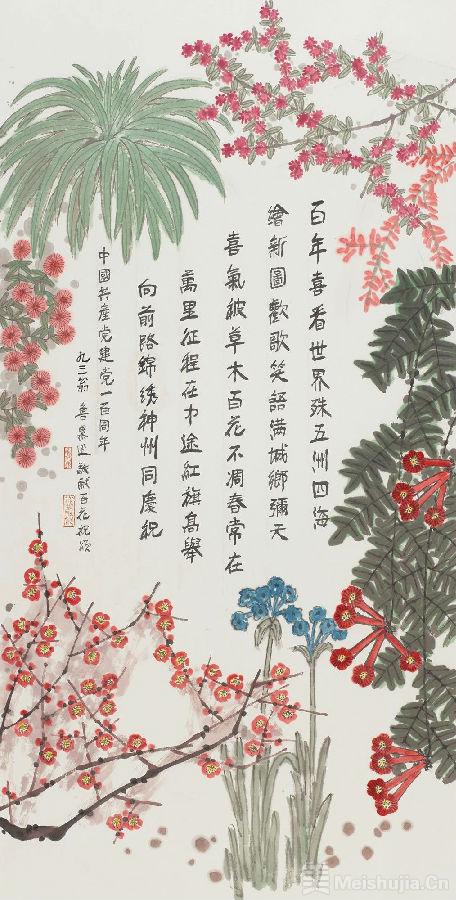 百年喜看世界殊五洲四海
繪新圖歡歌笑語满城鄉彌天
喜氣披草木百花不凋春常在
萬里征程在中途紅旗高舉
向前路錦綉神州同慶祝
中國共產党建党一百周年
九三翁 魯慕迅 敬献百花祝頌
美 Meishujia.Cn